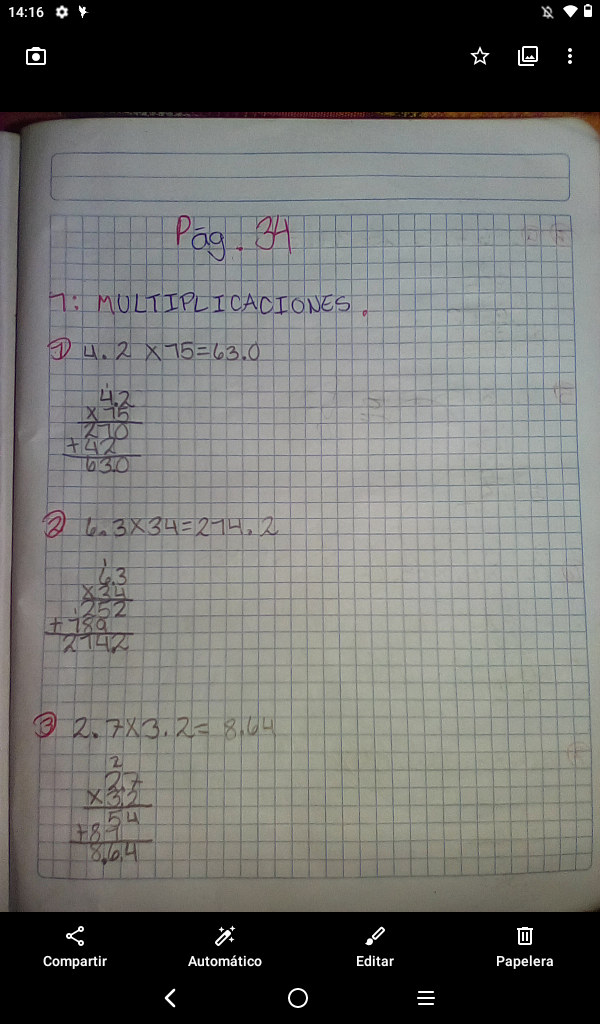 14:16
Pág. 34
1: MULTIPLICACIONES.
1 4.2 x 15=63.0
1
4.2
x 15
210
+42
63.0
2 6.3x34=214.2
1
6.3
x34
252
+189
2142
3 2.7x3.2= 8.64
2
27
x32
54
+81
8.64
Compartir
Automático
Editar
Papelera